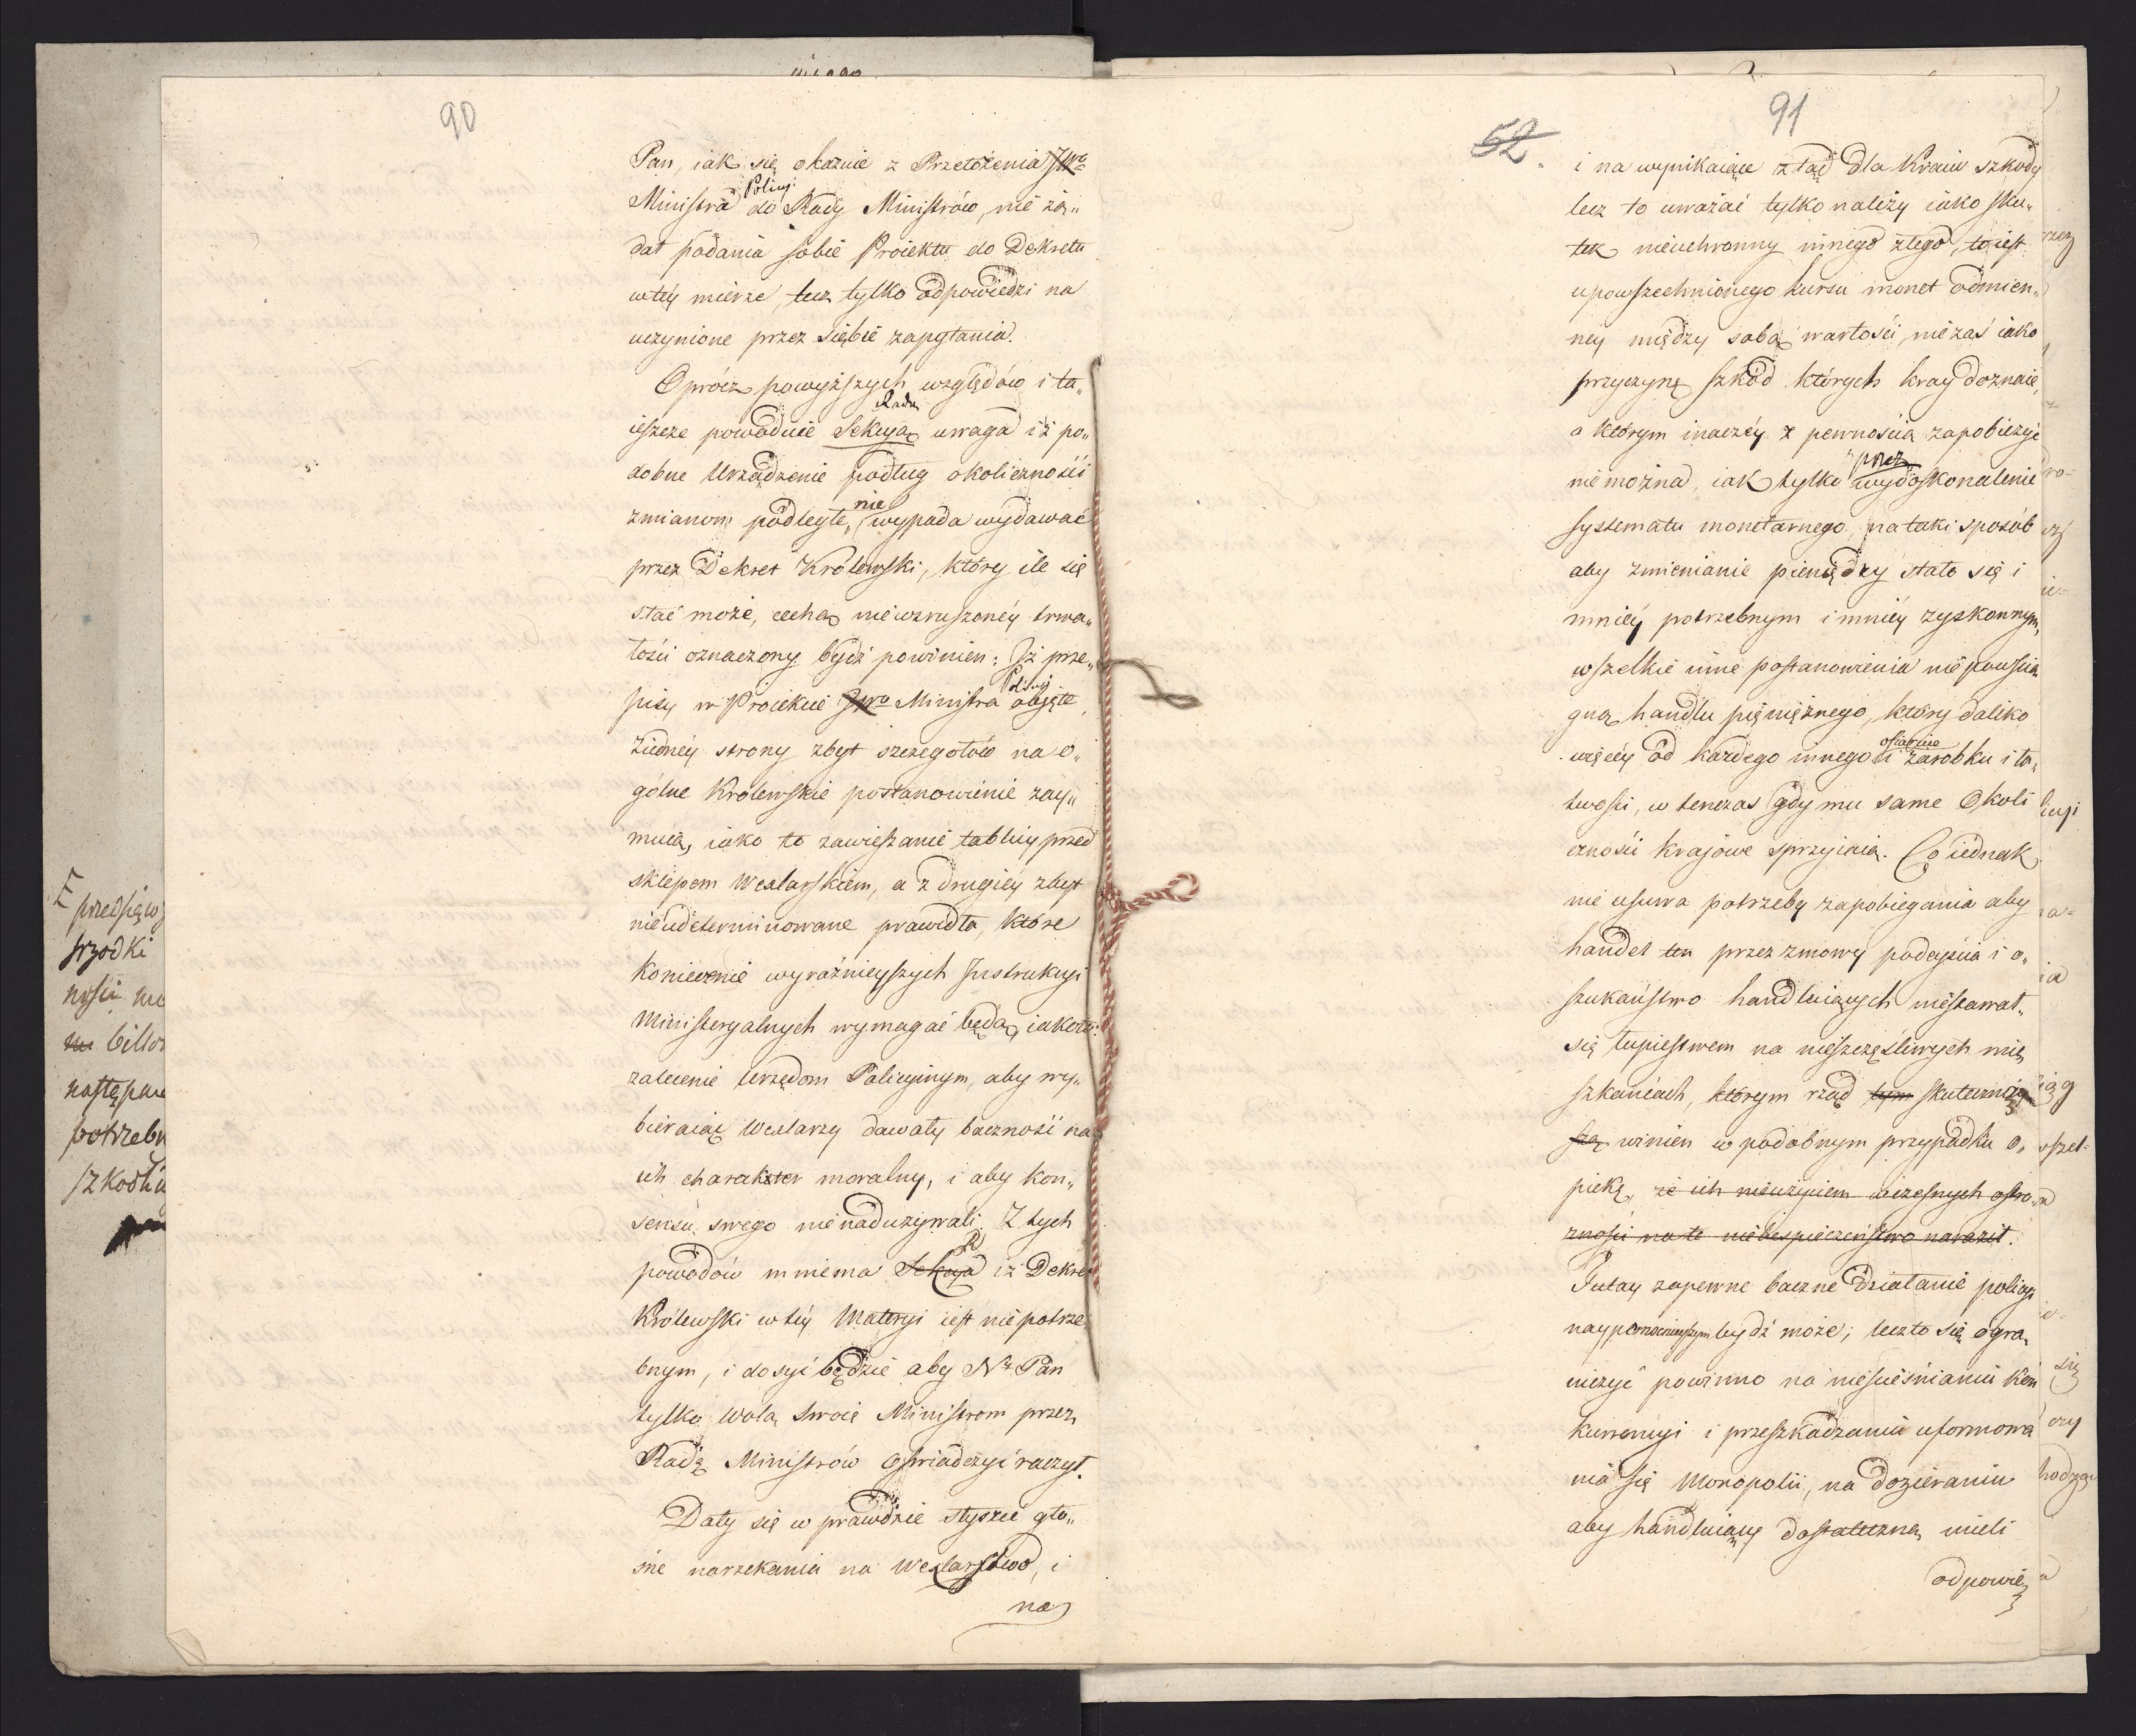 90
Pan, iak się okazuie z Przełożenia JWo
Policyi
Ministra do Rady Ministrów, nie żą„
dał podania sobie Proiektu do Dekretu
w téy mierze, lecz tylko odpowiedzi na
uczynione przez siebie zapytania.
Oprócz powyższych względów i ta„
Radę
ieszcze powoduie Sekcyą uwaga iż po„
dobne Urządzenie podług okoliczności
nie
zmianom podległe, wypada wydawać
przez Dekret Królewski, który ile się
stać może, cechą niewzruszonéy trwa„
łości oznaczony bydź powinien; Iż prze„
Policyi
pisy w Proiekcie JWo Ministra objęte,
ziednéy strony zbyt szczegołów na o„
gólne Królewskie postanowienie zay„
muią, iako to zawieszanie tablicy przed
sklepem Wexlarskiem, a z drugiéy zbyt
nieudeterminowane prawidła, które
koniecznie wyraźnieyszych Instrukcyi
Ministeryalnych wymagać będą, iakoto:
zalecenie Urzędom Policyinym, aby wy„
bieraiąc Wexlarzy dawały baczność na
ich charakter moralny, i aby kon„
sensu swego nie nadużywali. Z tych
R
powodów mniema Sekcya iż Dekret
Królewski w téy Materyi iest niepotrze„
bnym, i dosyć będzie aby Nr Pan
tylko wolą swoię Ministrom przez
Radę Ministrów oświadczyć raczył.
Dały się w prawdzie słyszeć gło„
śne narzekania na Wexlarstwo, i
na
E przedsięw
srzodki
ności
billon
następu
potrzebn
szkodli
91
52.
i na wynikaiące ztąd dla Kraiu szkody
lecz to uważać tylko należy iako sku„
tek nieuchronny innego złego, to iest
upowszechnionego kursu monet odmien„
néy między sobą wartości, nie zaś iako
przyczynę szkod których kray doznaie,
a którym inaczéy z pewnością zapobieżyć
przez
nie można, iak tylko wydoskonalenie
systematu monetarnego, na taki sposób
aby zmienianie pieniędzy stało się i
mniéy potrzebnym i mniéy zyskownym,
wszelkie inne postanowienia niepowścia
gną handlu pieniężnego, który daleko
ofiaruie
więcéy od każdego innego zarobku i ła„
twości, w tenczas gdy mu same Okoli
czności krajowe sprzyiaią. Co iednak
nie usuwa potrzebę zapobiegania aby
handel ten przez zmowy podeyścia i o„
szukaństwo handluiących niestawał„
się łupiestwem na nieszczęśliwych mie
szkańcach, którym rząd tym skuteczniey
szą winien w podobnym przypadku o„
piekę, że ich nieużyciem wczesnych ostro„
żności na te niebespieczeństwo naraził.
Tutay zapewne baczne działanie policyi
naypomocnieyszym bydź może; lecz to się ogra„
niczyć powinno na nieścieśnianiu kon
kurrencyi i przeszkadzaniu uformowa
nia się Monopolii, na dozieraniu
aby handluiący dostateczną mieli
odpowie